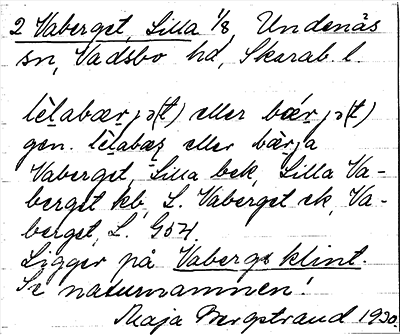 2 Vaberget, Lilla 1/8, Undenäs
sn, Vadsbo hd, Skarab. l.
lèlabærjə(t) eller bǽrjə(t)
gen. lèlabæz eller bærja
Vaberget, Lilla bek, Lilla Va-
berget kb, L. Vaberget ek, Va-
berget, L. G54
Ligger på Vabergs klint.
Se naturnamnen!
Maja Bergstrand 1930.